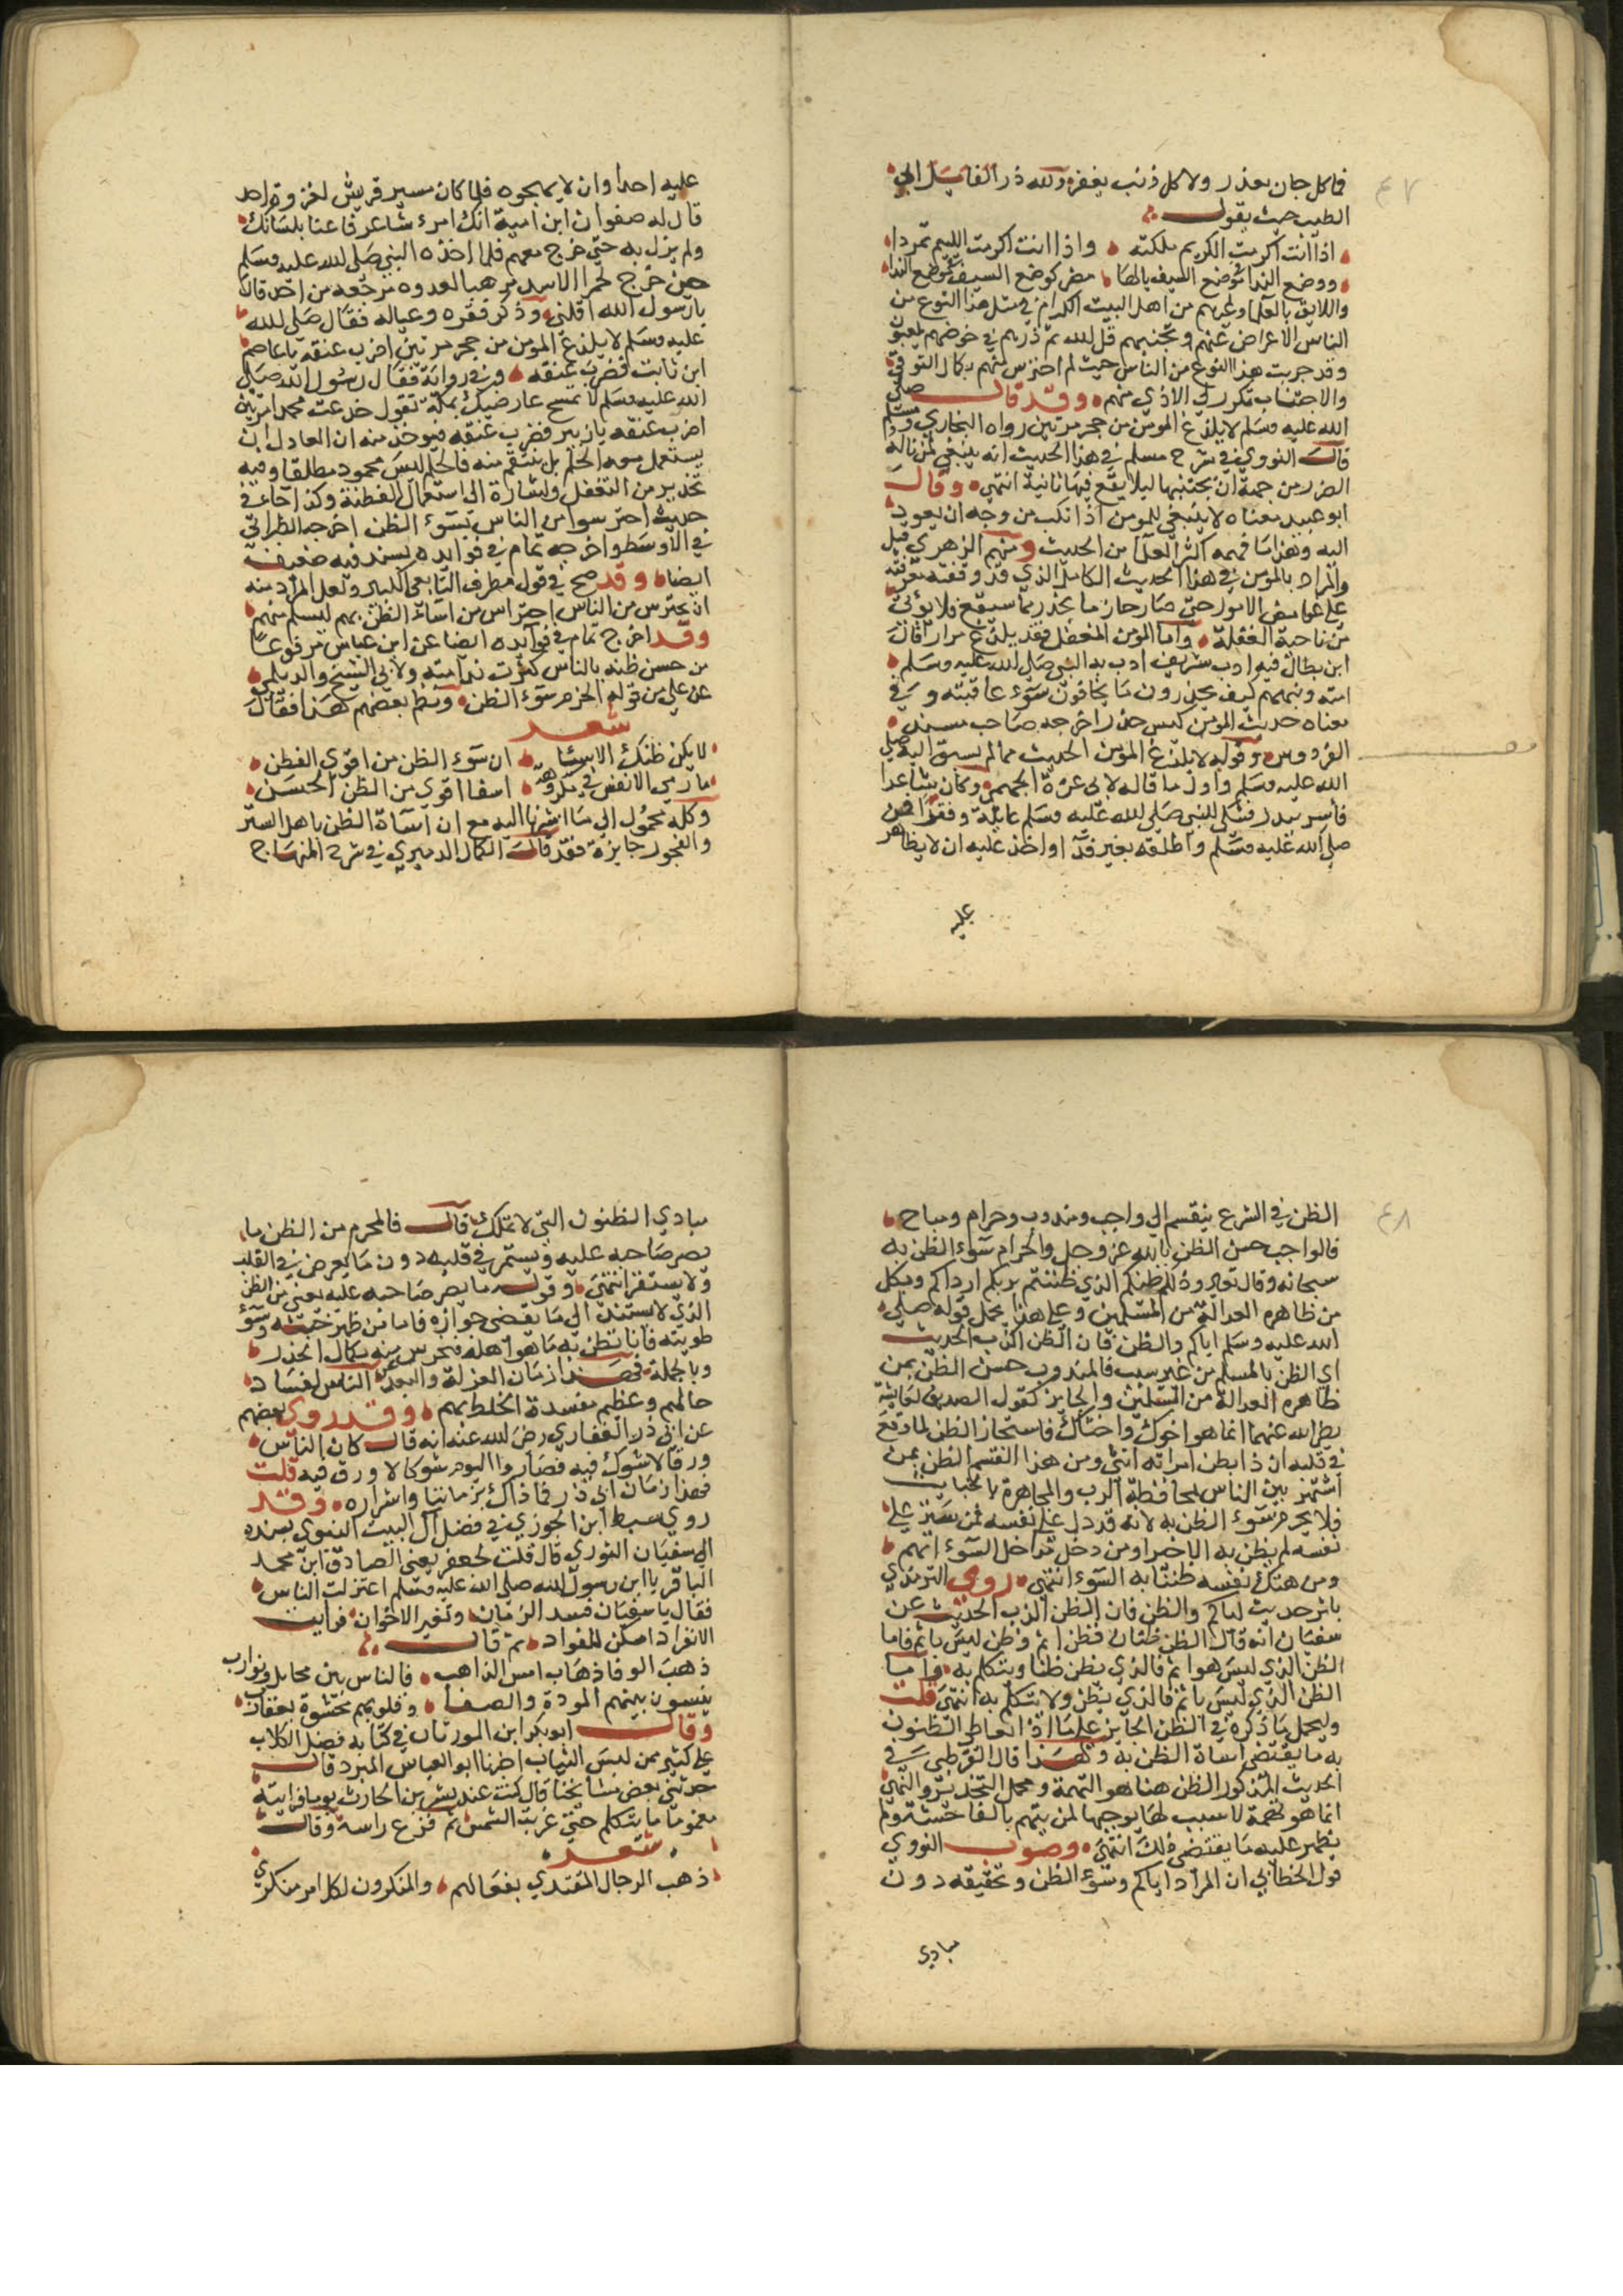 ٤٧
فما كل جان يعذر ولا كل ذنب يغفر ولله در القائل ابي
الطيب حيث يقول
اذا انت اكرمت الكريم ملكته واذا انت اكرمت اللئيم تمردا
ووضع الندا في موضع السيف بالعلا مضر كوضع السيف في موضع الندا
واللايق بالعلما وغيرهم من اهل البيت الكرام في مثل هذا النوع من
الناس الاعراض عنهم وتجنبهم قل الله ثم ذرهم في خوضهم يلعبون
وقد جربت هذا النوع من الناس حيث لم احترس منهم بكمال التوقي
والاجتناب تكرر لي الاذى منهم وقد قال صلى
الله عليه وسلم لا يلدغ المومن من جحر مرتين رواه البخاري ومسلم
قال النووي في شرح مسلم في هذا الحديث انه ينبغي لمن ناله
الضرر من جهة ان يجتنبها ليلا يقع فيها ثانية انتهى وقال
ابو عبيد معناه لا ينبغي للمومن اذا نكب من وجه ان يعود
اليه وهذا ما فهمه اكثر العلما من الحديث ومنهم الزهري قيل
والمراد بالمومن في هذا الحديث الكامل الذي قد وقفته معرفته
على غوامض الامور حتى صار حازما يحذر مما سيقع فلا يؤتى
من ناحية الغفلة واما المومن المغفل فقد يلدغ مرارا قال
ابن بطال فيه ادب شريف ادب به النبي صلى الله عليه وسلم
امته ونبههم كيف يحذرون ما يخافون سوء عاقبته وفي
معناه حديث المومن كيس حذر اخرجه صاحب مسند
الفردوس وقوله لا يلدغ المومن الحديث مما لم يسبق اليه صلى
الله عليه وسلم واول ما قاله لابي عزة الجمحي وكان شاعرا
فاسر ببدر فشكى للنبي صلى الله عليه وسلم عايلة وفقرا فمن
صلى الله عليه وسلم واطلقه بغير فدا واخذ عليه ان لا يظاهر
عليه
عليه احدا وان لا يهجوه فلما كان مسير قريش لغزوة احد
قال له صفوان ابن امية انك امرء شاعر فاعنا بلسانك
ولم يزل به حتى خرج معهم فلما اخذه النبي صلى الله عليه وسلم
حين خرج لحمرا الاسد مرهبا لعدوه مرجعه من احد قال
يا رسول الله اقلني وذكر فقره وعياله فقال صلى الله
عليه وسلم لا يلدغ المومن من جحر مرتين اضرب عنقه يا عاصم
ابن ثابت فضرب عنقه وفي رواية فقال رسول الله صلى
الله عليه وسلم لا تمسح عارضيك بمكة تقول خدعت محمدا مرتين
اضرب عنقه يا زبير فضرب عنقه فيوخذ منه ان العادل ان
يستعمل معه الحلم بل ينتقم منه فالحلم ليس محمود مطلقا وفيه
تحذير من التغفل واشارة الى استعمال الفطنة وكذا جاء في
حديث احترسوا من الناس بسوء الظن اخرجه الطبراني
في الاوسط واخرجه تمام في فوايده بسند فيه ضعيف
ايضا وقد صح في قول مطرف التابعي الكبير ولعل المراد منه
ان يحترس من الناس احتراس من اساء الظن بهم ليسلم منهم
وقد اخرج تمام في فوايده ايضا عن ابن عباس مرفوعا
من حسن ظنه بالناس كثرت ندامته ولابي الشيخ والديلمي
عن علي من قوله الحزم سوء الظن ونظم بعضهم هذا فقال
شعر
لا يكن ظنك الا سيئا ان سوء الظن من اقوى الفطن
ما رمى الانفس في مكروهة اسفا اقوى من الظن الحسن
وكله محمول الى ما اشرنا اليه مع ان اساة الظن باهل الستر
والفجور جايزة فقد قال الكمال الدميري في شرح المنهاج
٤٨
الظن في الشرع ينقسم الى واجب ومندوب وحرام ومباح
فالواجب حسن الظن بالله عز وجل والحرام سوء الظن به
سبحانه وقال تعالى وذلكم ظنكم الذي ظننتم بربكم ارداكم وبكل
من ظاهره العدالة من المسلمين وعلى هذا يحمل قوله صلى
الله عليه وسلم اياكم والظن فان الظن اكذب الحديث
اي الظن بالمسلم من غير سبب فالمندوب حسن الظن بمن
ظاهره العدالة من المسلمين والجايز كقول الصديق لعايشة
رضي الله عنهما انما هو اخوك واختاك فاستجاز الظن لما وقع
في قلبه ان ذا بطن امراته انثى ومن هذا القسم الظن بمن
اشتهر بين الناس بمخالطة الريب والمجاهرة بالخبايث
فلا يحرم سوء الظن به لانه قد دل على نفسه فمن ستر على
نفسه لم يظن به الا خيرا ومن دخل مداخل السوء اتهم
ومن هتك نفسه ظننا به السوء انتهى روى الترمذي
باثر حديث اياكم والظن فان الظن اكذب الحديث عن
سفيان انه قال الظن ظنان فظن اثم وظن ليس باثم فاما
الظن الذي ليس هو اثم فالذي يظن ظنا ويتكلم به واما
الظن الذي ليس باثم فالذي يظن ولا يتكلم به انتهى قلت
وليحمل ما ذكره في الظن الجايز على ما اذا تعاطى المظنون
به ما يقتضي اساة الظن به ولهذا قال القرطبي في
الحديث المذكور الظن هنا هو التهمة ومحل التحذير والنهي
انما هو تهمة لا سبب لها يوجبها لمن يتهم بالفاحشة ولم
يظهر عليه ما يقتضي ذلك انتهى وصوب النووي
قول الخطابي ان المراد اياكم وسوء الظن وتحقيقه دون
مبادي
مبادي الظنون التي لا تملك قال فالمحرم من الظن ما
يصر صاحبه عليه ويستمر في قلبه دون ما يعرض في القلب
ولا يستقر انتهى وقوله ما يصر صاحبه عليه يعني من الظن
الذي لا يستند الى ما يقتضي جوازه فاما من ظهر خبثه وسوء
طويته فانا نظن به ما هو اهله فنحرس منه بكمال الحذر
وبالجملة فهذا زمان العزلة والبعد عن الناس لفساد
حالهم وعظم مفسدة الخلط بهم وقد روى بعضهم
عن ابي ذر الغفاري رضي الله عنه انه قال كان الناس
ورقا لا شوك فيه فصاروا اليوم شوكا لا ورق فيه قلت
فهذا زمان ابي ذر فما ذاك بزماننا واشراره وقد
روى سبط ابن الجوزي في فضل آل البيت النبوي بسنده
الى سفيان الثوري قال قلت لجعفر يعني الصادق ابن محمد
الباقر يا ابن رسول الله صلى الله عليه وسلم اعتزلت الناس
فقال يا سفيان فسد الزمان وتغير الاخوان فرايت
الانفراد اسكن للفواد ثم قال
ذهب الوفا ذهاب امس الذاهب فالناس بين مخايل وموارب
يفشون بينهم المودة والصفا وقلوبهم محشوة بعقارب
وقال ابو بكر ابن المرزبان في كتابه فضل الكلاب
على كثير ممن لبس الثياب اخبرنا ابو العباس المبرد قال
حدثني بعض مشايخنا قال كنت عند بشر بن الحارث يوما فرايته
مغموما ما يتكلم حتى غربت الشمس ثم فزع راسه وقال
شعر
ذهب الرجال المقتدي بفعالهم والمنكرون لكل امر منكري